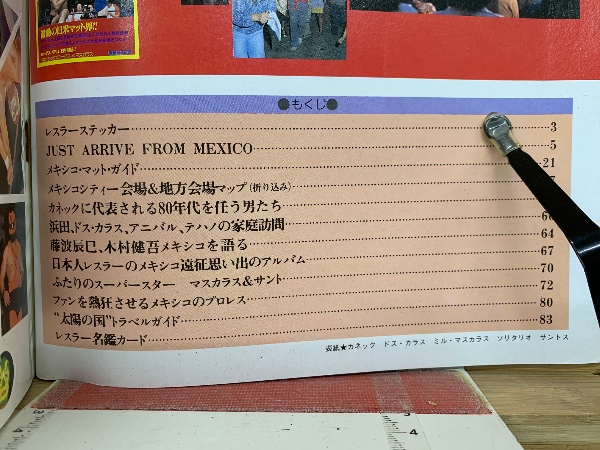 激動の日米マット界!!
●もくじ●
レスラーステッカー 3
JUST ARRIVE FROM MEXICO 5
メキシコ・マット・ガイド 21
メキシコシティー会場&地方会場マップ(折り込み) 7
カネックに代表される80年代を任う男たち
浜田、ドス・カラス、アニバル、テハノの家庭訪問 60
藤波辰巳、木村健吾メキシコを語る 64
日本人レスラーのメキシコ遠征思い出のアルバム 67
ふたりのスーパースター マスカラス&サント 70
ファンを熱狂させるメキシコのプロレス 72
“太陽の国”トラベルガイド 80
レスラー名鑑カード 83
表紙★カネック ドス・カラス ミル・マスカラス ソリタリオ サントス
3
4
4